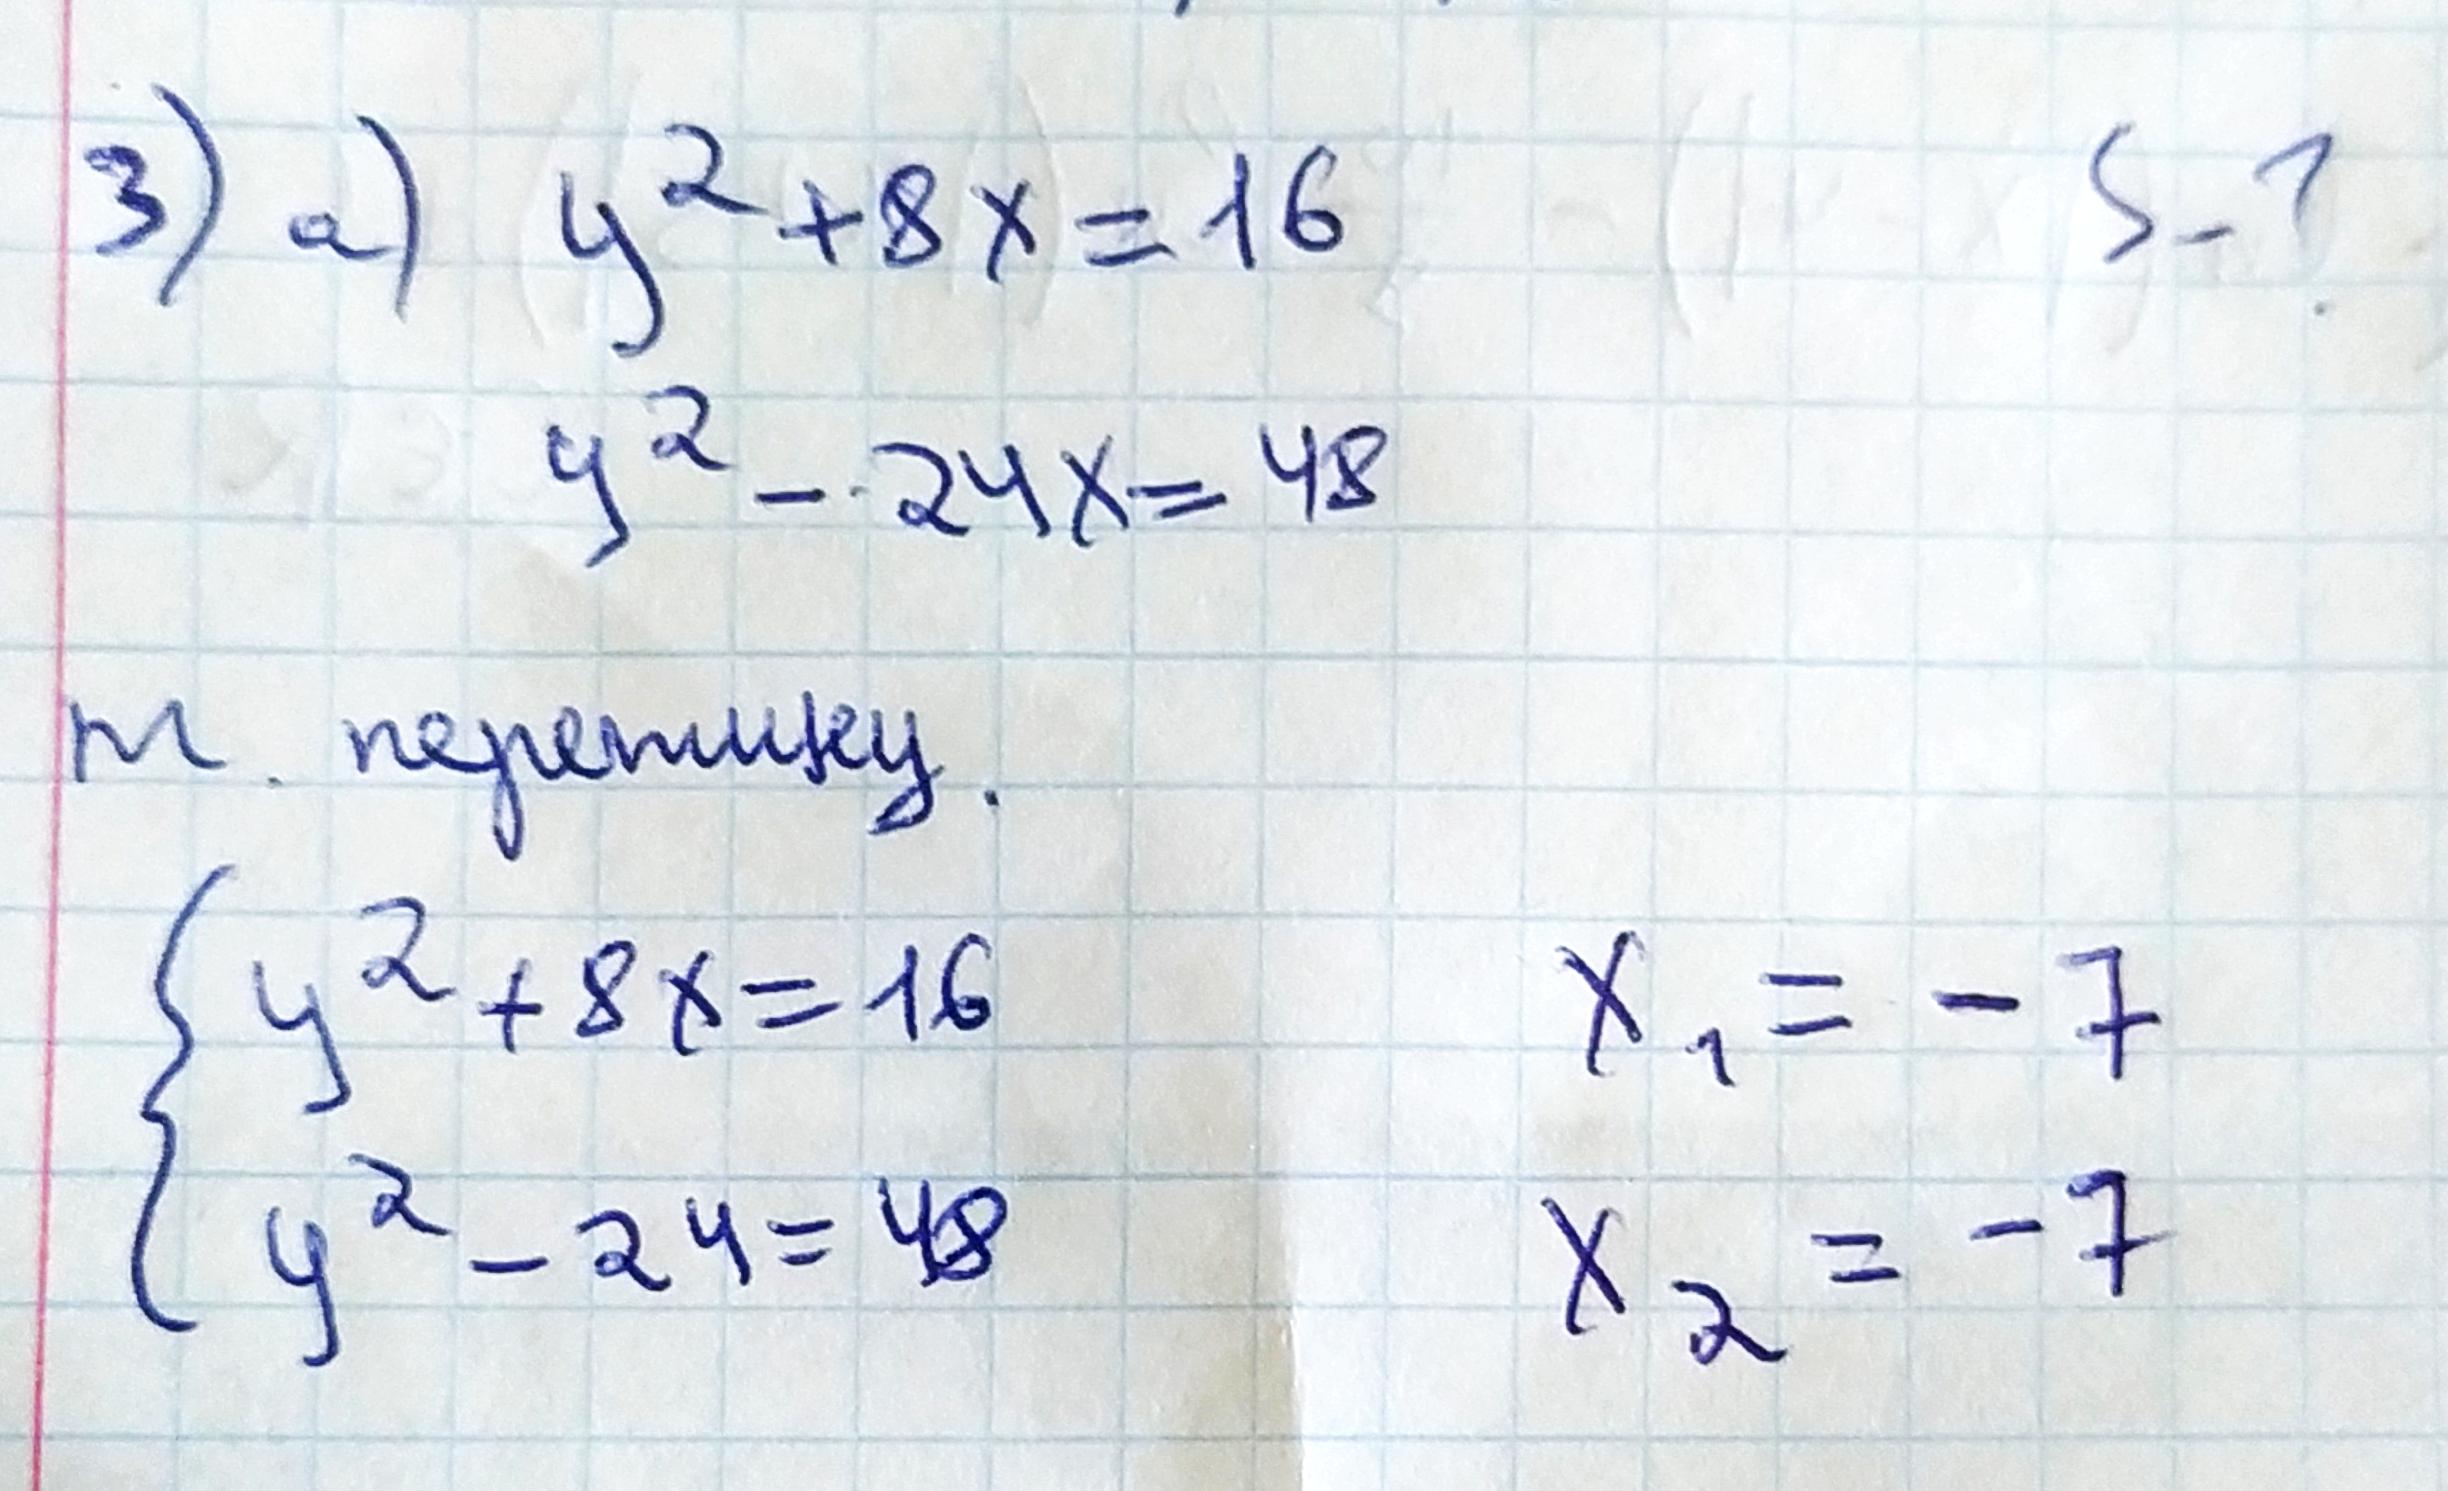 3) а) y² + 8x = 16 S - ?
y² - 24x = 48
т. перетину.
{ y² + 8x = 16 x₁ = - 7
y² - 24 = 48 x₂ = - 7